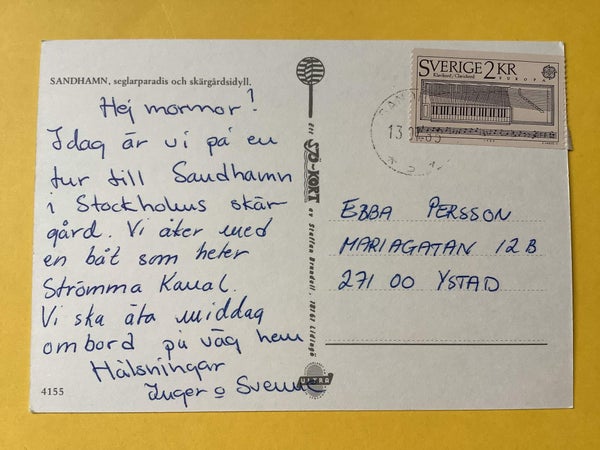 SANDHAMN, seglarparadis och skärgårdsidyll.
Hej mormor!
Idag är vi på en
tur till Sandhamn
i Stockholms skär
gård. Vi åker med
en båt som heter
Strömma Kanal.
Vi ska äta middag
ombord på väg hem
Hälsningar
Inger o Svenne
4155
ett SJÖ-KORT av Staffan Brundell. 18161 Lidingö
ULTRA
SVERIGE 2 KR
Klavikord/Clavichord
EUROPA
EBBA PERSSON
MARIAGATAN 12B
271 00 YSTAD